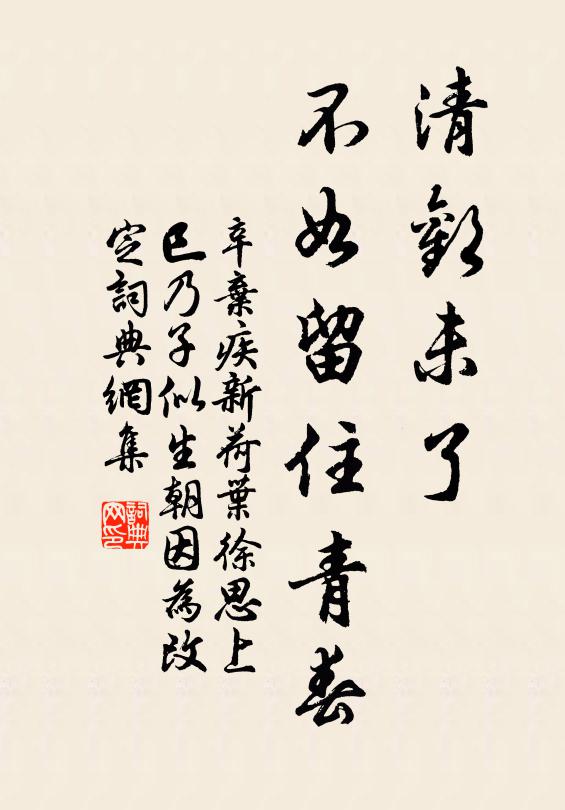 清歡未了
不如留住青春
辛棄疾新荷葉徐思上
巳乃子似生朝因為改
定詞典網集
詞典網印